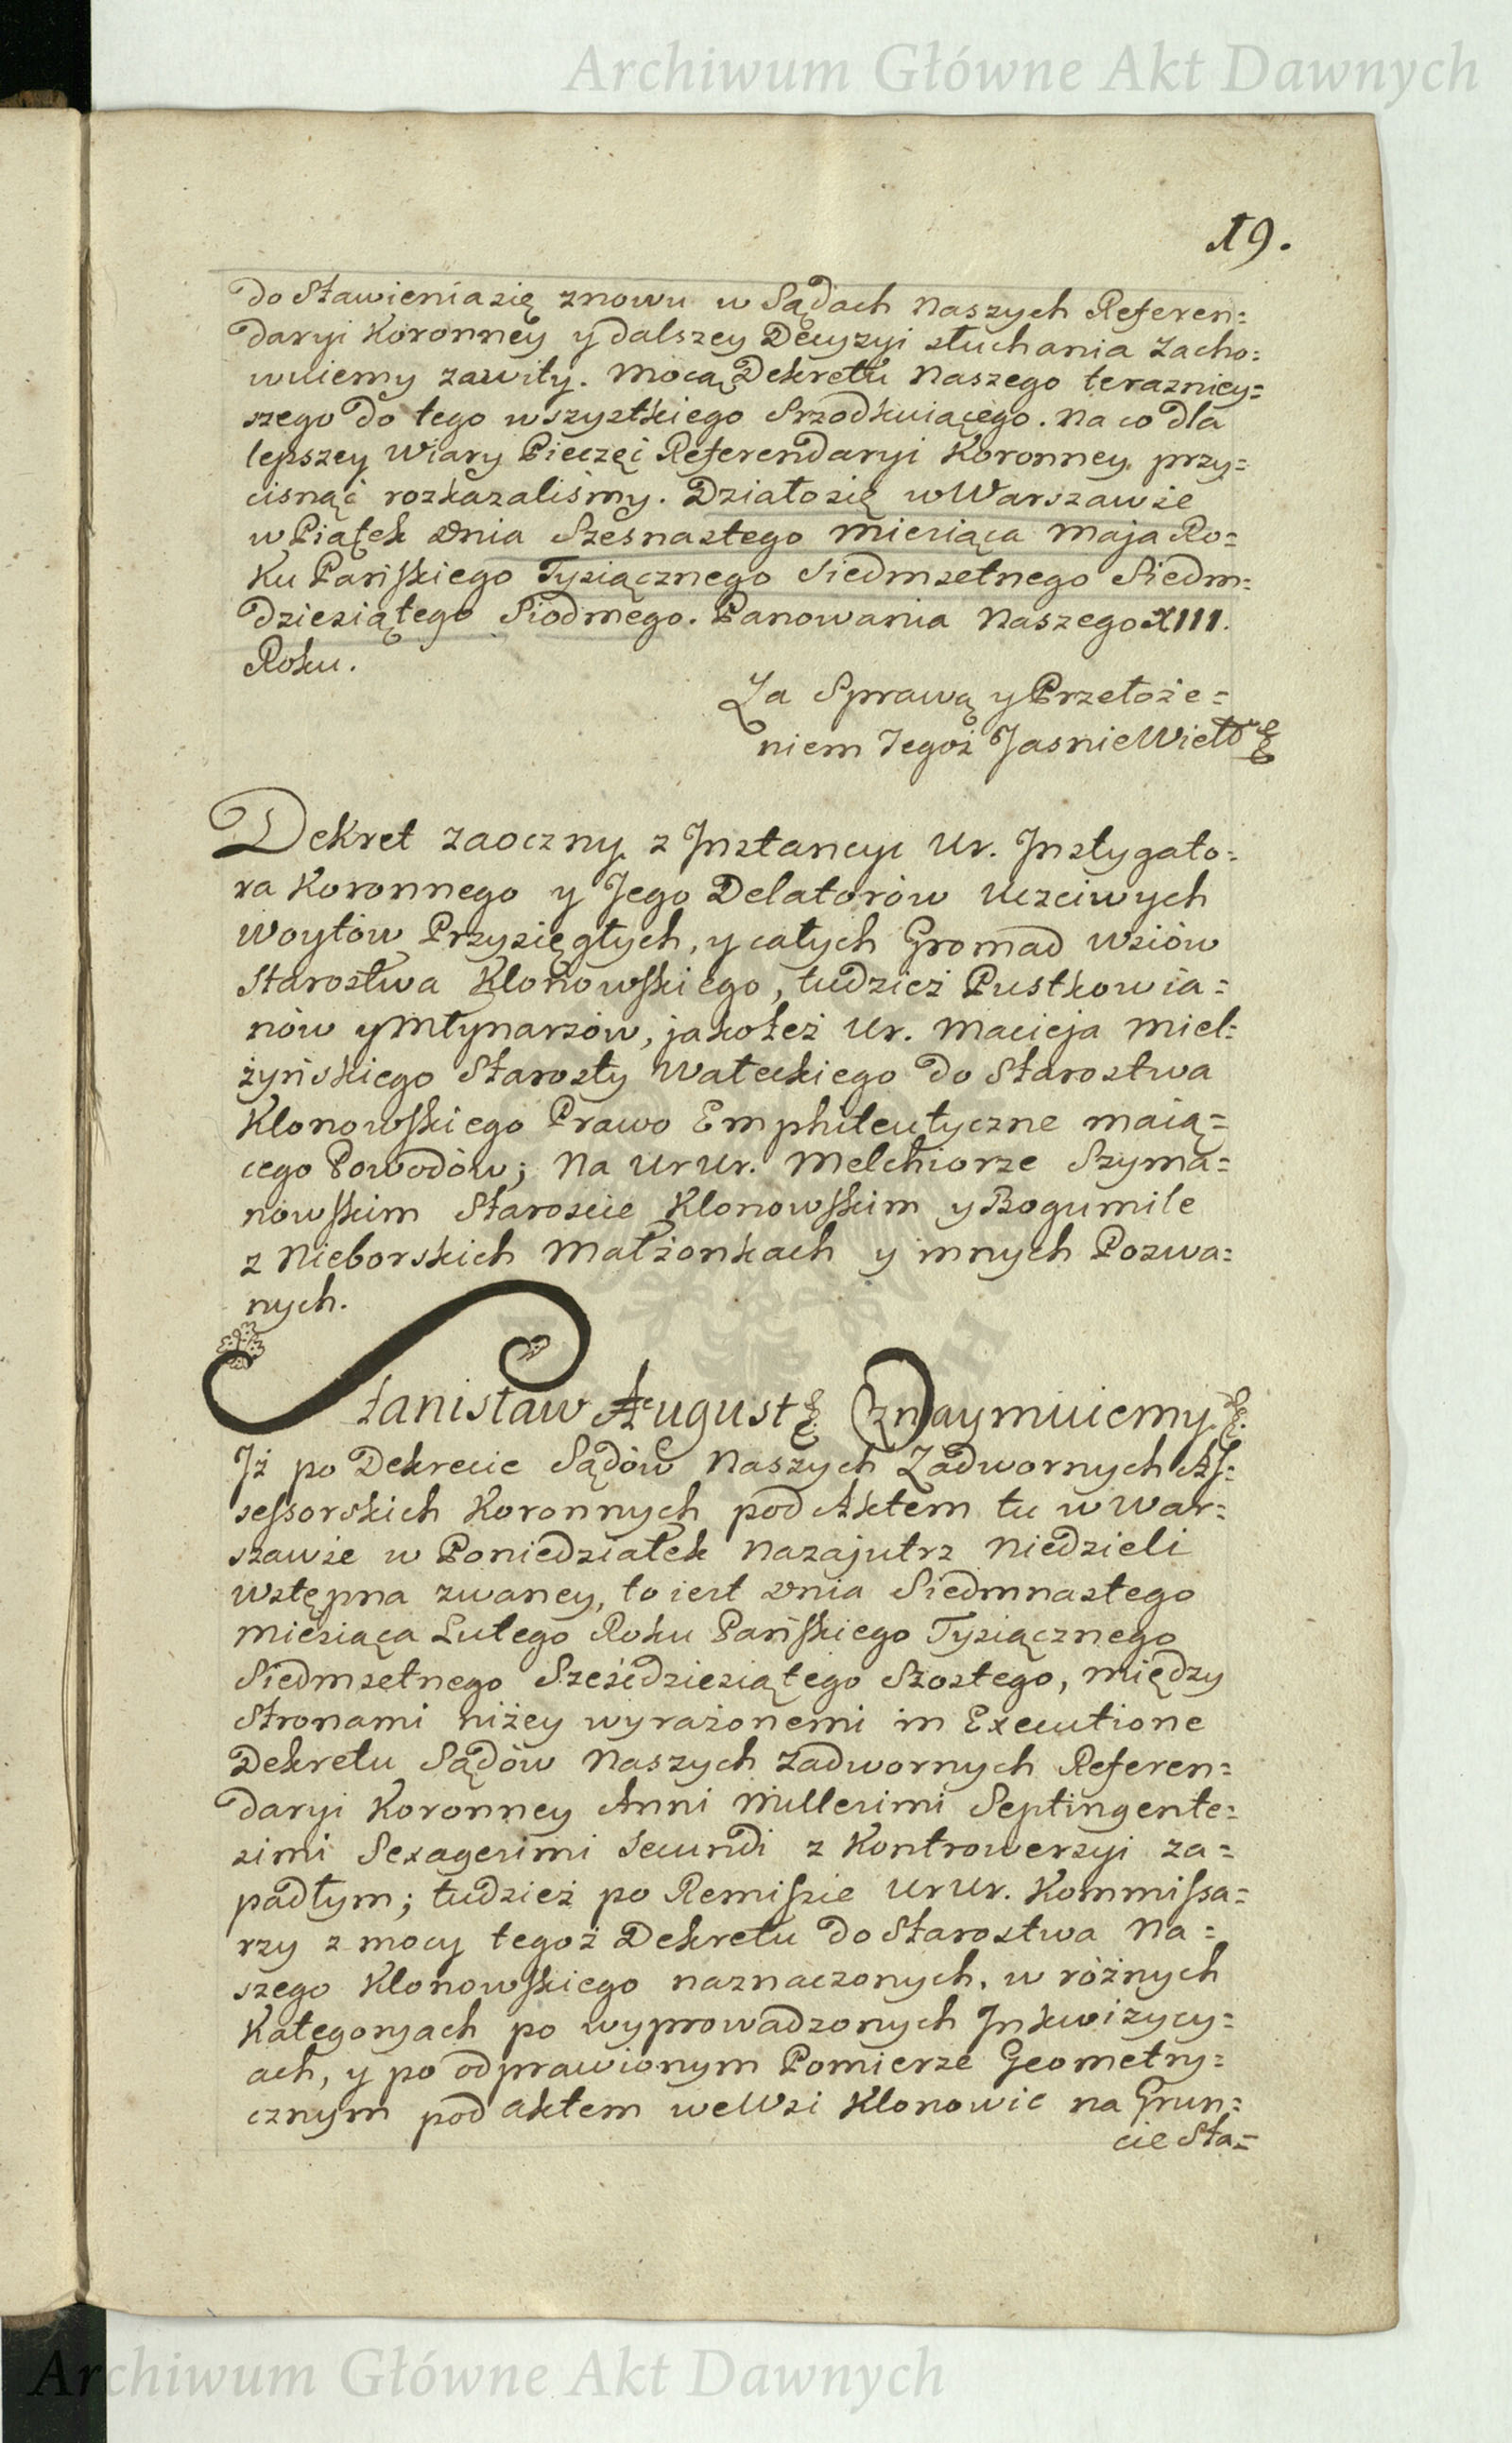 Archiwum Główne Akt Dawnych
19.
do Stawienia się znowu w Sądach Naszych Referen=
daryi Koronney y dalszey Decyzyi słuchania zacho=
wuiemy zawity. Mocą Dekretu Naszego terazniey=
szego do tego wszystkiego Srzodkuiącego. Na co dla
lepszey Wiary Pieczęć Referendaryi Koronney przy=
cisnąć rozkazaliśmy. Działo się w Warszawie
w Piątek Dnia Szesnastego Miesiąca Maja Ro=
ku Pańskiego Tysiącznego Siedmsetnego Siedm=
dziesiątego Siodmego. Panowania Naszego XIII.
Roku.
Za Sprawą y Przełoże=
niem Tegoż Jasnie Wielo
Dekret zaoczny z Jnstancyi Ur. Jnstygato=
ra Koronnego y Jego Delatorów Uczciwych
Woytów Przysięgłych, y całych Gromad Wsiów
Starostwa Klonowskiego, tudzież Pustkowia=
nów y Młynarzów, jakoteż Ur. Macieja Miel=
żyńskiego Starosty Wałeckiego do Starostwa
Klonowskiego Prawo Emphiteutyczne maią=
cego Powodów; Na Ur Ur. Melchiorze Szyma=
nowskim Staroscie Klonowskim y Bogumile
z Nieborskich Małżonkach y innych Pozwa=
nych.
Stanisław August Oznaymuiemy.
Jż po Dekrecie Sądów Naszych Zadwornych As=
sessorskich Koronnych pod Aktem tu w War=
szawie w Poniedziałek nazajutrz Niedzieli
Wstępna zwaney, to iest Dnia Siedmnastego
Miesiąca Lutego Roku Pańskiego Tysiącznego
Siedmsetnego Sześćdziesiątego Szostego, między
Stronami niżey wyrażonemi in Executione
Dekretu Sądów Naszych Zadwornych Referen=
daryi Koronney Anni Millesimi Septingente=
simi Sexagesimi Secundi z Kontrowersyi za=
padłym; tudzież po Remissie Ur Ur. Kommissa=
rzy z mocy tegoż Dekretu do Starostwa Na=
szego Klonowskiego naznaczonych, w różnych
Kategoryach po wyprowadzonych Jnkwizycy=
ach, y po odprawionym Pomierze Geometry=
cznym pod aktem we Wsi Klonowie na Grun=
cie Sta=
Archiwum Główne Akt Dawnych